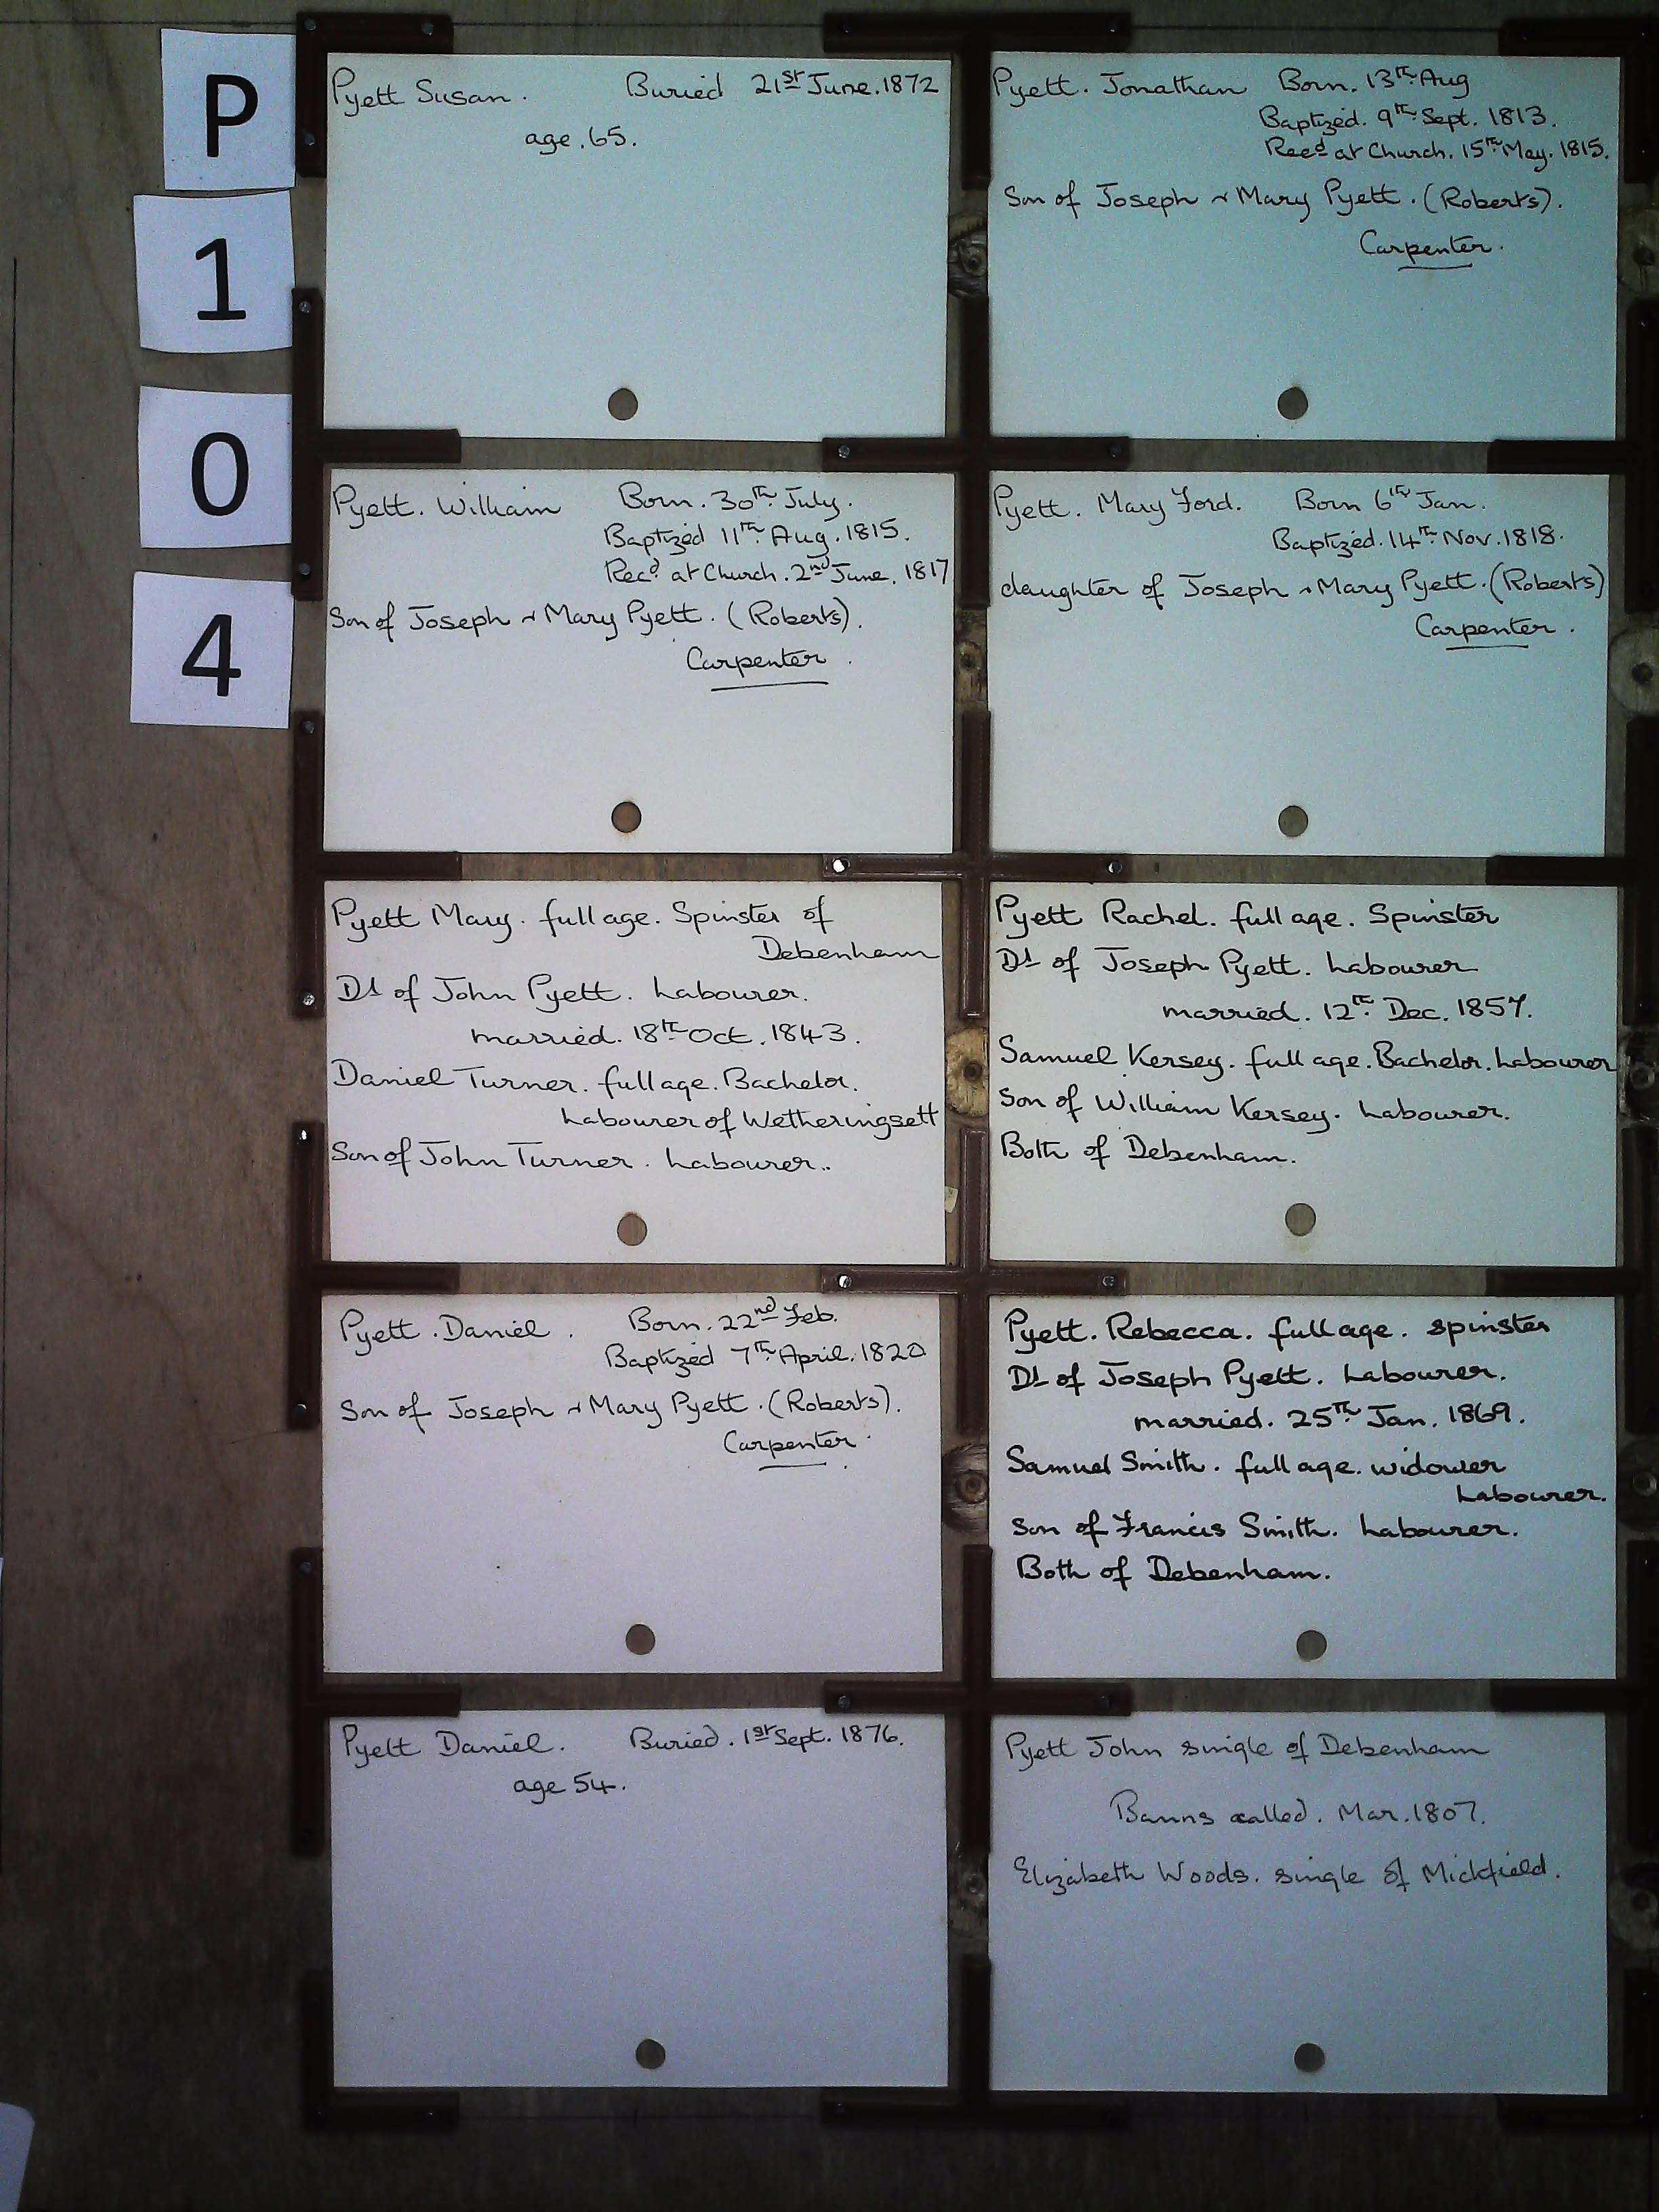 P
1
0
4
Pyett Susan. Buried 21st June. 1872
age. 65.
Pyett. Jonathan Born. 13th Aug
Baptized. 9th Sept. 1813.
Recd at Church. 15th May. 1815.
Son of Joseph & Mary Pyett. (Roberts).
Carpenter.
Pyett. William Born. 30th July.
Baptized 11th Aug. 1815.
Recd at Church. 2nd June. 1817
Son of Joseph & Mary Pyett. (Roberts).
Carpenter.
Pyett. Mary Ford. Born 6th Jan.
Baptized. 14th Nov. 1818.
daughter of Joseph & Mary Pyett. (Roberts)
Carpenter.
Pyett Mary. full age. Spinster of
Debenham
Dt of John Pyett. Labourer.
married. 18th Oct. 1843.
Daniel Turner. full age. Bachelor.
Labourer of Wetheringsett
Son of John Turner. Labourer..
Pyett Rachel. full age. Spinster
Dt of Joseph Pyett. Labourer
married. 12th Dec. 1857.
Samuel Kersey. full age. Bachelor. Labourer
Son of William Kersey. Labourer.
Both of Debenham.
Pyett. Daniel. Born. 22nd Feb.
Baptized 7th April. 1820
Son of Joseph & Mary Pyett. (Roberts).
Carpenter.
Pyett. Rebecca. full age. spinster
Dt of Joseph Pyett. Labourer.
married. 25th Jan. 1869.
Samuel Smith. full age. widower
Labourer.
Son of Francis Smith. Labourer.
Both of Debenham.
Pyett Daniel. Buried. 1st Sept. 1876.
age 54.
Pyett John single of Debenham
Banns called. Mar. 1807.
Elizabeth Woods. single of Mickfield.